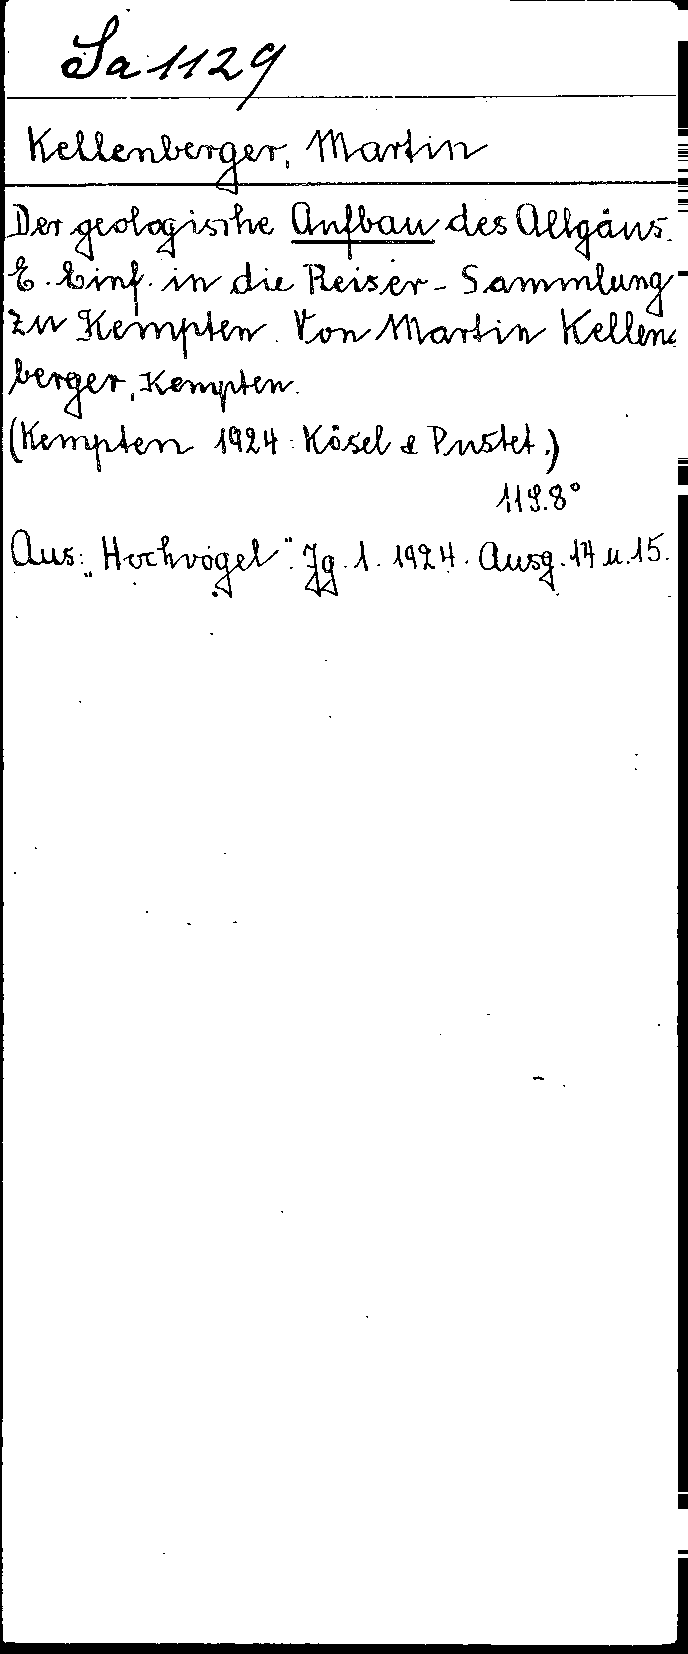 Sa 1129
Kellenberger, Martin
Der geologische Aufbau des Allgäus.
E. Einf. in die Reiser-Sammlung
zu Kempten. Von Martin Kellen-
berger, Kempten.
(Kempten 1924: Kösel & Pustet.)
11 S. 8°
Aus: „Hochvogel". Jg. 1. 1924. Ausg. 14 u. 15.